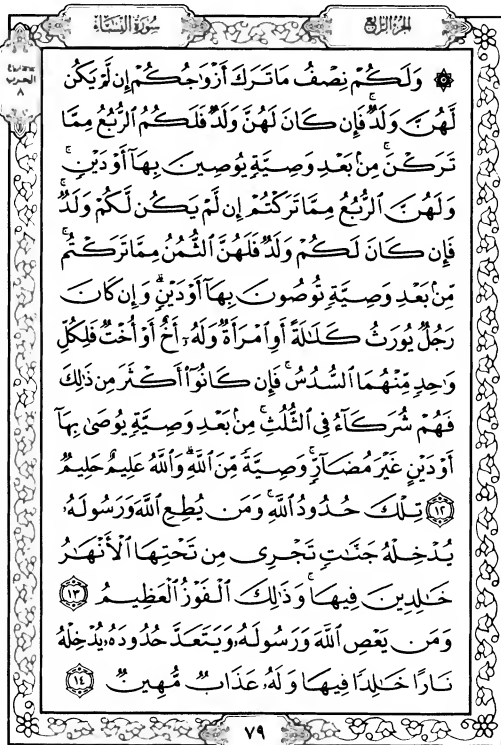 الجزء الرابع
سورة النساء
الحزب
٨
۞ وَلَكُمْ نِصْفُ مَا تَرَكَ أَزْوَٰجُكُمْ إِن لَّمْ يَكُن
لَّهُنَّ وَلَدٌۚ فَإِن كَانَ لَهُنَّ وَلَدٌ فَلَكُمُ ٱلرُّبُعُ مِمَّا
تَرَكْنَۚ مِنۢ بَعْدِ وَصِيَّةٍ يُوصِينَ بِهَآ أَوْ دَيْنٍۚ
وَلَهُنَّ ٱلرُّبُعُ مِمَّا تَرَكْتُمْ إِن لَّمْ يَكُن لَّكُمْ وَلَدٌۚ
فَإِن كَانَ لَكُمْ وَلَدٌ فَلَهُنَّ ٱلثُّمُنُ مِمَّا تَرَكْتُمۚ
مِّنۢ بَعْدِ وَصِيَّةٍ تُوصُونَ بِهَآ أَوْ دَيْنٍۗ وَإِن كَانَ
رَجُلٌ يُورَثُ كَلَٰلَةً أَوِ ٱمْرَأَةٌ وَلَهُۥٓ أَخٌ أَوْ أُخْتٌ فَلِكُلِّ
وَٰحِدٍ مِّنْهُمَا ٱلسُّدُسُۚ فَإِن كَانُوٓا۟ أَكْثَرَ مِن ذَٰلِكَ
فَهُمْ شُرَكَآءُ فِى ٱلثُّلُثِۚ مِنۢ بَعْدِ وَصِيَّةٍ يُوصَىٰ بِهَآ
أَوْ دَيْنٍ غَيْرَ مُضَآرٍّۚ وَصِيَّةً مِّنَ ٱللَّهِۗ وَٱللَّهُ عَلِيمٌ حَلِيمٌ
١٢ تِلْكَ حُدُودُ ٱللَّهِۚ وَمَن يُطِعِ ٱللَّهَ وَرَسُولَهُۥ
يُدْخِلْهُ جَنَّٰتٍ تَجْرِى مِن تَحْتِهَا ٱلْأَنْهَٰرُ
خَٰلِدِينَ فِيهَاۚ وَذَٰلِكَ ٱلْفَوْزُ ٱلْعَظِيمُ ١٣
وَمَن يَعْصِ ٱللَّهَ وَرَسُولَهُۥ وَيَتَعَدَّ حُدُودَهُۥ يُدْخِلْهُ
نَارًا خَٰلِدًا فِيهَا وَلَهُۥ عَذَابٌ مُّهِينٌ ١٤
٧٩